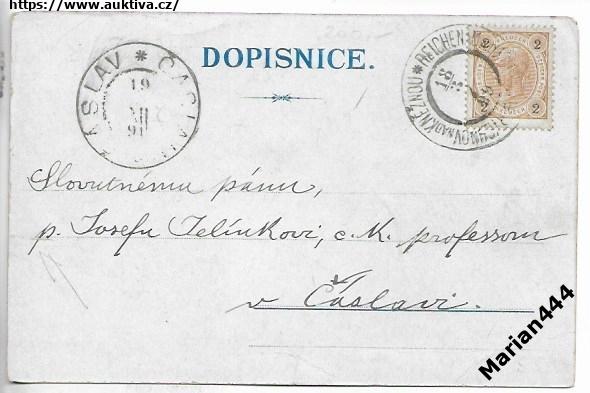 https://www.auktiva.cz/
DOPISNICE.
ČÁSLAV * ČASLAU
19
XII
91
REICHENAU
RYCHNOV NAD KNĚŽNOU *
18
2
2
2
2
Slovutnému pánu,
p. Josefu Jelínkovi, c. k. professoru
v Čáslavi.
Marian444